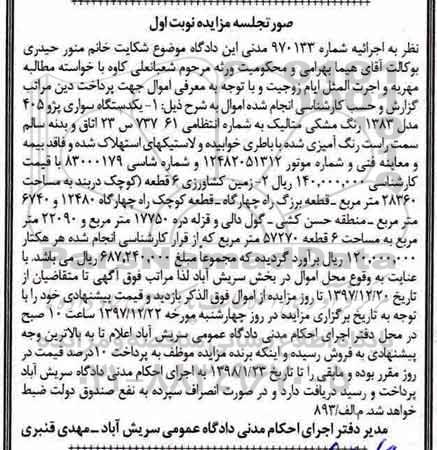 صورتجلسه مزایده نوبت اول
نظر به اجرائیه شماره ۹۷۰۱۳۳ مدنی این دادگاه موضوع شکایت خانم منور حیدری
بوکالت آقای هیما بهرامی و محکومیت ورثه مرحوم شعبانعلی کاوه با خواسته مطالبه
مهریه و اجرت المثل ایام زوجیت و با توجه به معرفی اموال جهت پرداخت دین مراتب
گزارش و حسب کارشناسی انجام شده اموال به شرح ذیل: ۱- یکدستگاه سواری پژو ۴۰۵
مدل ۱۳۸۳ رنگ مشکی متالیک به شماره انتظامی ۶۱ ۷۳۷س ۲۳ اتاق و بدنه سالم
سمت راست رنگ آمیزی شده با باطری خوابیده و لاستیکهای استهلاک شده و فاقد بیمه
و معاینه فنی و شماره موتور ۱۲۴۸۲۰۵۱۳۱۲ و شماره شاسی ۸۳۰۰۰۱۷۹ با قیمت
کارشناسی ۱۴۰,۰۰۰,۰۰۰ ریال ۲- زمین کشاورزی ۶ قطعه (کوچک دربند به مساحت
۲۸۳۶۰ متر مربع - قطعه بزرگ راه چهارگاه - قطعه کوچک راه چهارگاه ۱۲۴۸۰ و ۶۷۴۰
متر مربع - منطقه حسن کشی - گول دالی و قزله دره ۱۷۷۵۰ متر مربع و ۲۲۰۹۰ متر
مربع به مساحت ۶ قطعه ۵۷۲۷۰ متر مربع که از قرار کارشناسی انجام شده هر هکتار
۱۲۰,۰۰۰,۰۰۰ ریال برآورد گردیده که مجموعا مبلغ ۶۸۷,۲۴۰,۰۰۰ ریال می باشد. با
عنایت به وقوع محل اموال در بخش سریش آباد لذا مراتب فوق آگهی تا متقاضیان از
تاریخ ۱۳۹۷/۱۲/۲۰ تا روز مزایده از اموال فوق الذکر بازدید و قیمت پیشنهادی خود را با
توجه به تاریخ برگزاری مزایده در روز چهارشنبه مورخه ۱۳۹۷/۱۲/۲۲ ساعت ۱۰ صبح
در محل دفتر اجرای احکام مدنی دادگاه عمومی سریش آباد اعلام تا به بالاترین وجه
پیشنهادی به فروش رسیده و اینکه برنده مزایده موظف به پرداخت ۱۰ درصد قیمت در
روز مقرر بوده و مابقی را تا تاریخ ۱۳۹۸/۱/۲۳ به اجرای احکام مدنی دادگاه سریش آباد
پرداخت و رسید دریافت دارد و در صورت انصراف سپرده به نفع صندوق دولت ضبط
خواهد شد. م.الف/۸۹۳
مدیر دفتر اجرای احکام مدنی دادگاه عمومی سریش آباد - مهدی قنبری